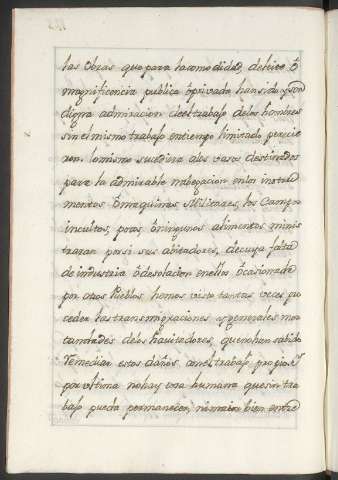 las Obras que para la comodidad, deleite ô
magnificencia publica ô privada han sido y son
digna admiracion del trabajo de los hombres
sin el mismo trabajo en tiempo limitado perecie
ron. lo mismo sucediera a los vasos destinados
para la admirable nabegacion en los instru
mentos ô maquinas Militares, los Campos
incultos, pocos ô ningunos alimentos minis
traran por si sus abitadores, de cuya falta
de industria ô desolacion en ellos ôcasionada
por otros Pueblos hemos visto tantas veces pro
ceder las transmigraciones y generales mor
tandades de los havitadores, que no han sabido
remediar estos daños con el trabajo propio, y
por ultimo no hay cosa humana que sin tra
bajo pueda permanecer, ni maior bien entre